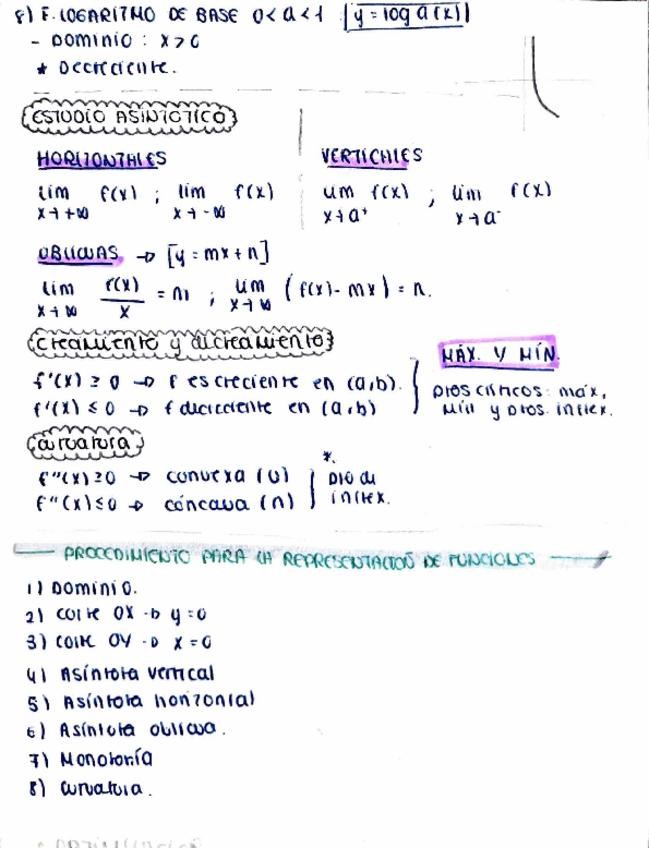 8) F. LOGARITMO DE BASE 0<a<1 [y = log a(x)]
- DOMINIO : x>0
* Decreciente.
ESTUDIO ASINTÓTICO
HORIZONTALES
lim f(x) ; lim f(x)
x→+∞ x→-∞
VERTICALES
lim f(x) ; lim f(x)
x→a⁺ x→a⁻
OBLICUAS → [y = mx + n]
lim f(x)/x = m ; lim (f(x) - mx) = n.
x→∞ x→∞
Crecimiento y decrecimiento
f'(x) ≥ 0 → f es creciente en (a,b).
f'(x) ≤ 0 → f decreciente en (a,b)
MÁX. Y MÍN.
ptos críticos: máx,
mín y ptos. inflex.
Curvatura
f''(x) ≥ 0 → convexa (∪)
f''(x) ≤ 0 → cóncava (∩)
*.
pto de
inflex.
PROCEDIMIENTO PARA LA REPRESENTACIÓN DE FUNCIONES
1) Dominio.
2) Corte OX → y = 0
3) Corte OY → x = 0
4) Asíntota vertical
5) Asíntota horizontal
6) Asíntota oblicua.
7) Monotonía
8) Curvatura.